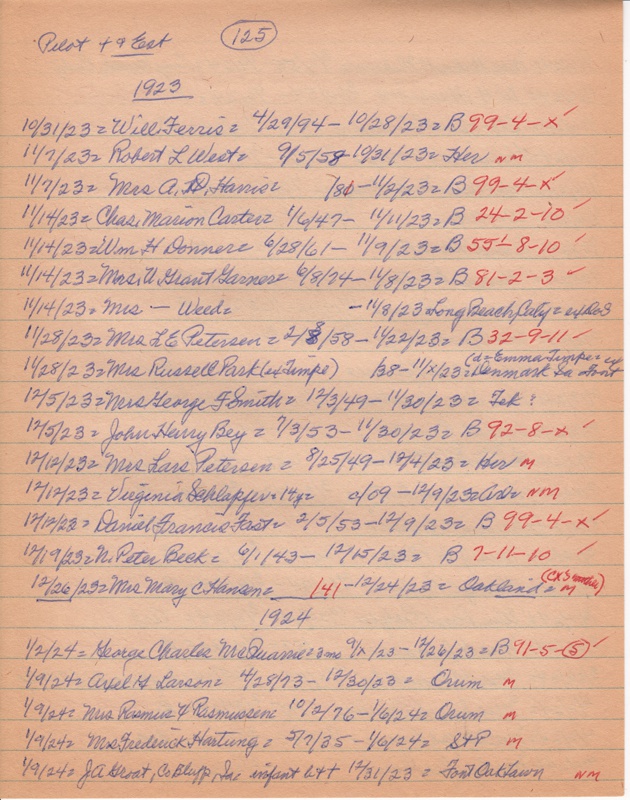 Pilot + & Ent (125)
1923
10/31/23 = Will Ferris = 4/29/94 - 10/28/23 = B 99-4-x ✓
11/7/23 = Robert L West = 9/5/58 - 10/31/23 = Her NM
11/7/23 = Mrs A. D. Harris = /80 - 11/2/23 = B 99-4-x ✓
11/14/23 = Chas. Marion Carter = 1/6/47 - 11/11/23 = B 24-2-10 ✓
11/14/23 = Wm H Donner = 6/28/61 - 11/9/23 = B 55-8-10 ✓
11/14/23 = Mrs. U. Grant Garner = 6/8/74 - 11/8/23 = B 81-2-3 ✓
11/14/23 = Mrs — Weed = - 11/8/23 = Long Beach
11/28/23 = Mrs L E Petersen = 2/8/58 - 11/22/23 = B 32-9-11 ✓
11/28/23 = Mrs Russell Park (ex Timpe) b38 - 11/x/23 = (d = Emma Timpe = Denmark
12/5/23 = Mrs George F Smith = 12/3/49 - 11/30/23 = Tek ?
12/5/23 = John Harry Bey = 7/3/53 - 11/30/23 = B 92-8-x ✓
12/12/23 = Mrs Lars Petersen = 8/25/49 - 12/4/23 = Her M
12/12/23 = Virginia Schlapfer = 14y = c/09 - 12/9/23 = NM
12/12/23 = Daniel Francis Fast = 2/5/53 - 12/9/23 = B 99-4-x ✓
12/19/23 = N. Peter Beck = 6/1/43 - 12/15/23 = B 7-11-10 ✓
12/26/23 = Mrs Mary C Hansen = /41 - 12/24/23 = Oakland = M
1924
1/2/24 = George Charles = 3mo 9/x/23 - 12/26/23 = B 91-5-(5) ✓
1/9/24 = Axel H Larson = 4/28/73 - 12/30/23 = Orum M
1/9/24 = Mrs Rasmus Rasmussen 10/2/76 - 1/6/24 = Orum M
1/9/24 = Mrs Frederick Hartung = 5/7/35 - 1/6/24 = St P M
1/9/24 = J A Groat, Co Bluff, infant 12/31/23 = NM